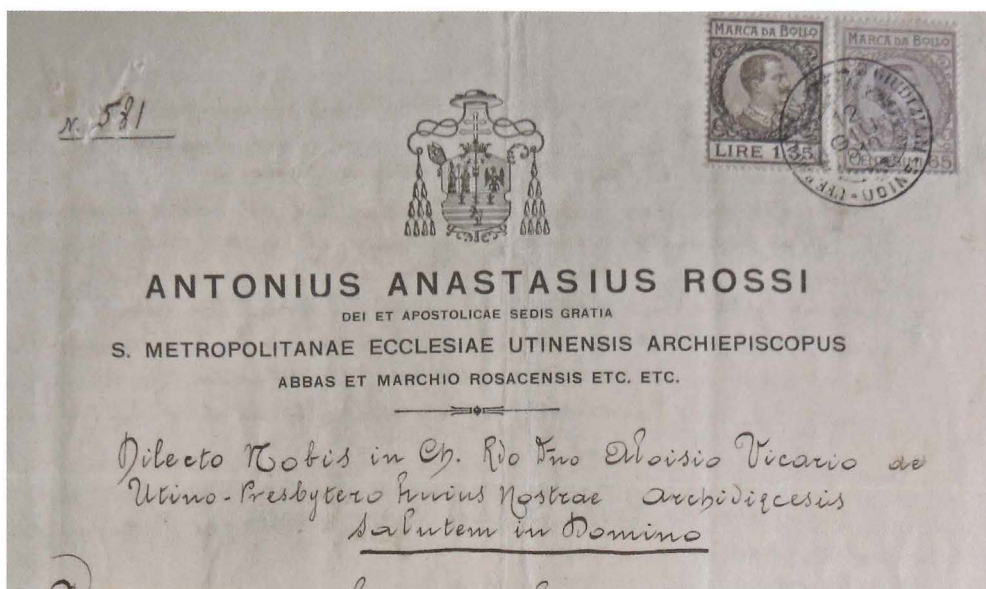 N. 581
MARCA DA BOLLO
LIRE 1,35
MARCA DA BOLLO
CENTESIMI 65
UDINE
ANTONIUS ANASTASIUS ROSSI
DEI ET APOSTOLICAE SEDIS GRATIA
S. METROPOLITANAE ECCLESIAE UTINENSIS ARCHIEPISCOPUS
ABBAS ET MARCHIO ROSACENSIS ETC. ETC.
Dilecto Nobis in Ch. Rdo Dno Aloisio Vicario de
Utino-Presbytero huius Nostrae Archidiœcesis
Salutem in Domino